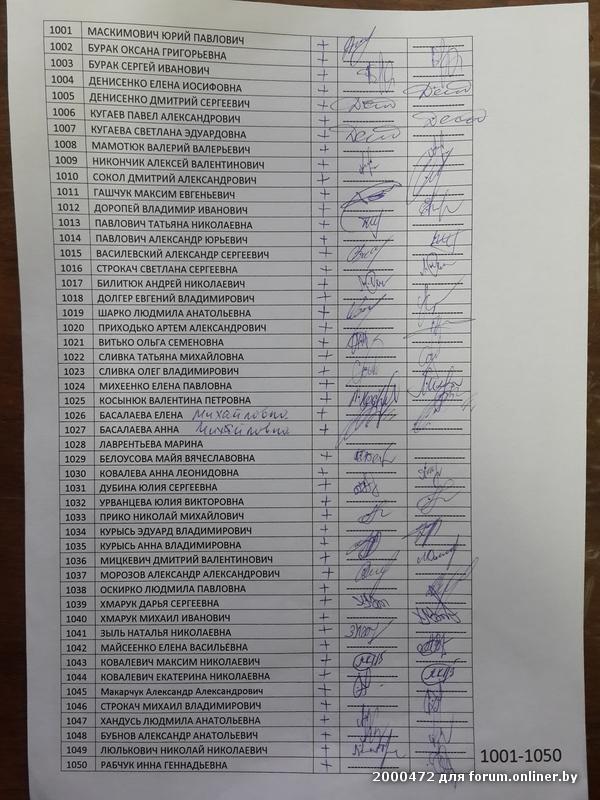 1001 МАСКИМОВИЧ ЮРИЙ ПАВЛОВИЧ +
1002 БУРАК ОКСАНА ГРИГОРЬЕВНА +
1003 БУРАК СЕРГЕЙ ИВАНОВИЧ +
1004 ДЕНИСЕНКО ЕЛЕНА ИОСИФОВНА +
1005 ДЕНИСЕНКО ДМИТРИЙ СЕРГЕЕВИЧ +
1006 КУГАЕВ ПАВЕЛ АЛЕКСАНДРОВИЧ +
1007 КУГАЕВА СВЕТЛАНА ЭДУАРДОВНА +
1008 МАМОТЮК ВАЛЕРИЙ ВАЛЕРЬЕВИЧ +
1009 НИКОНЧИК АЛЕКСЕЙ ВАЛЕНТИНОВИЧ +
1010 СОКОЛ ДМИТРИЙ АЛЕКСАНДРОВИЧ +
1011 ГАЩУК МАКСИМ ЕВГЕНЬЕВИЧ +
1012 ДОРОПЕЙ ВЛАДИМИР ИВАНОВИЧ +
1013 ПАВЛОВИЧ ТАТЬЯНА НИКОЛАЕВНА +
1014 ПАВЛОВИЧ АЛЕКСАНДР ЮРЬЕВИЧ +
1015 ВАСИЛЕВСКИЙ АЛЕКСАНДР СЕРГЕЕВИЧ +
1016 СТРОКАЧ СВЕТЛАНА СЕРГЕЕВНА +
1017 БИЛИТЮК АНДРЕЙ НИКОЛАЕВИЧ +
1018 ДОЛГЕР ЕВГЕНИЙ ВЛАДИМИРОВИЧ +
1019 ШАРКО ЛЮДМИЛА АНАТОЛЬЕВНА +
1020 ПРИХОДЬКО АРТЕМ АЛЕКСАНДРОВИЧ +
1021 ВИТЬКО ОЛЬГА СЕМЕНОВНА +
1022 СЛИВКА ТАТЬЯНА МИХАЙЛОВНА +
1023 СЛИВКА ОЛЕГ ВЛАДИМИРОВИЧ +
1024 МИХЕЕНКО ЕЛЕНА ПАВЛОВНА +
1025 КОСЫНЮК ВАЛЕНТИНА ПЕТРОВНА +
1026 БАСАЛАЕВА ЕЛЕНА Михайловна +
1027 БАСАЛАЕВА АННА Михайловна +
1028 ЛАВРЕНТЬЕВА МАРИНА
1029 БЕЛОУСОВА МАЙЯ ВЯЧЕСЛАВОВНА +
1030 КОВАЛЕВА АННА ЛЕОНИДОВНА +
1031 ДУБИНА ЮЛИЯ СЕРГЕЕВНА +
1032 УРВАНЦЕВА ЮЛИЯ ВИКТОРОВНА +
1033 ПРИКО НИКОЛАЙ МИХАЙЛОВИЧ +
1034 КУРЫСЬ ЭДУАРД ВЛАДИМИРОВИЧ +
1035 КУРЫСЬ АННА ВЛАДИМИРОВНА +
1036 МИЦКЕВИЧ ДМИТРИЙ ВАЛЕНТИНОВИЧ +
1037 МОРОЗОВ АЛЕКСАНДР АЛЕКСАНДРОВИЧ +
1038 ОСКИРКО ЛЮДМИЛА ПАВЛОВНА +
1039 ХМАРУК ДАРЬЯ СЕРГЕЕВНА +
1040 ХМАРУК МИХАИЛ ИВАНОВИЧ +
1041 ЗЫЛЬ НАТАЛЬЯ НИКОЛАЕВНА +
1042 МАЙСЕЕНКО ЕЛЕНА ВАСИЛЬЕВНА +
1043 КОВАЛЕВИЧ МАКСИМ НИКОЛАЕВИЧ +
1044 КОВАЛЕВИЧ ЕКАТЕРИНА НИКОЛАЕВНА +
1045 Макарчук Александр Александрович +
1046 СТРОКАЧ МИХАИЛ ВЛАДИМИРОВИЧ +
1047 ХАНДУСЬ ЛЮДМИЛА АНАТОЛЬЕВНА +
1048 БУБНОВ АЛЕКСАНДР АНАТОЛЬЕВИЧ +
1049 ЛЮЛЬКОВИЧ НИКОЛАЙ НИКОЛАЕВИЧ +
1050 РАБЧУК ИННА ГЕННАДЬЕВНА +
1001-1050
2000472 для forum.onliner.by